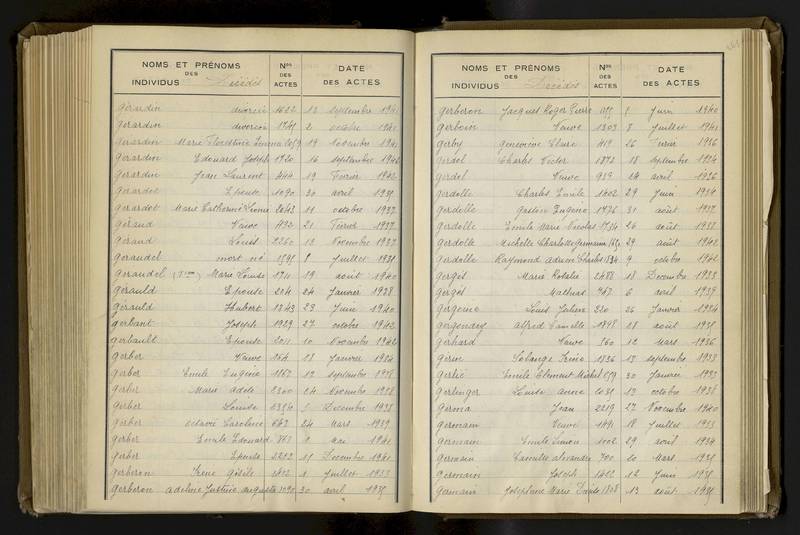 NOMS ET PRÉNOMS
DES
INDIVIDUS Décédés
Nos
DES
ACTES
DATE
DES ACTES
Gérardin divorcée 1622 12 septembre 1941
Gerardin divorcée 1741 2 octobre 1941
Gerardin Marie 19 Novembre 1941
Gérardin Edouard Joseph 1720 16 septembre 1942
Gerardin Jean Laurent 444 19 Février 1942
Gerardot Epouse 1090 30 avril 1931
Gerardot Marie Catherine Léonie 2043 11 octobre 1937
Géraud Veuve 492 21 Février 1937
Géraud Louis 2260 13 Novembre 1937
Geraudel mort né 1595 8 Juillet 1931
Geraudel Marie Louise 1711 19 août 1940
Gérauld Epouse 204 24 Janvier 1928
Gérauld Hubert 1343 23 Juin 1940
Gerbant Joseph 1929 27 octobre 1942
Gerbault Epouse 2011 10 Novembre 1942
Gerber Veuve 264 28 Janvier 1924
Gerber Emile Eugène 1867 12 septembre
Gerber Marie adèle 2300 24 Novembre 1928
Gerber Louise Decembre
Gerber octavie Caroline 642 24 Mars 1939
Gerber Emile Edouard 763 Mai 1941
Gerber Epouse 2212 11 Decembre 1941
Gerberon Irène Gisèle 1 Juillet 1933
Gerberon adeline Justine augusta 1090 30 avril 1931
NOMS ET PRÉNOMS
DES
INDIVIDUS Décédés
Nos
DES
ACTES
DATE
DES ACTES
Gerberon Jacques Roger Pierre Juin 1940
Gerboin Veuve 1303 8 Juillet 1941
Gerby Geneviève Claire 419 26 Février 1926
Gerdol Charles Victor 1872 18 septembre 1924
Gerdol Veuve 939 14 avril 1926
Gerdolle Charles Emile 1402 29 Juin 1934
Gerdolle gaston Eugène 1776 31 août 1937
Gerdolle Emile Marie Nicolas 1714 26 août 1938
Gerdolle Michelle Charlotte Germaine 29 août 1942
Gerdolle Raymond adrien Charles 1834 9 octobre 1942
Gergès Marie Rosalie 2488 18 Decembre 1933
Gergès Mathias 947 6 avril 1939
Gergoine Louis Julien 320 26 Janvier 1924
Gergonday alfred Camille 1848 18 août 1931
Gerhard Veuve 560 12 Mars 1936
Gerin Solange Irène 1836 13 septembre 1938
Gerlié Emile Clement Michel 30 Janvier 1933
Gerlinger Louise anne 13 octobre 1938
Germa Jean 2219 27 Novembre 1940
Germain Veuve 1491 18 Juillet 1933
Germain Emile Simon 1002 29 avril 1934
Germain Camille alexandre 700 10 Mars 1931
Germain Joseph 1412 12 Juin 1931
Germain Joséphine Marie 1808 13 août 1931